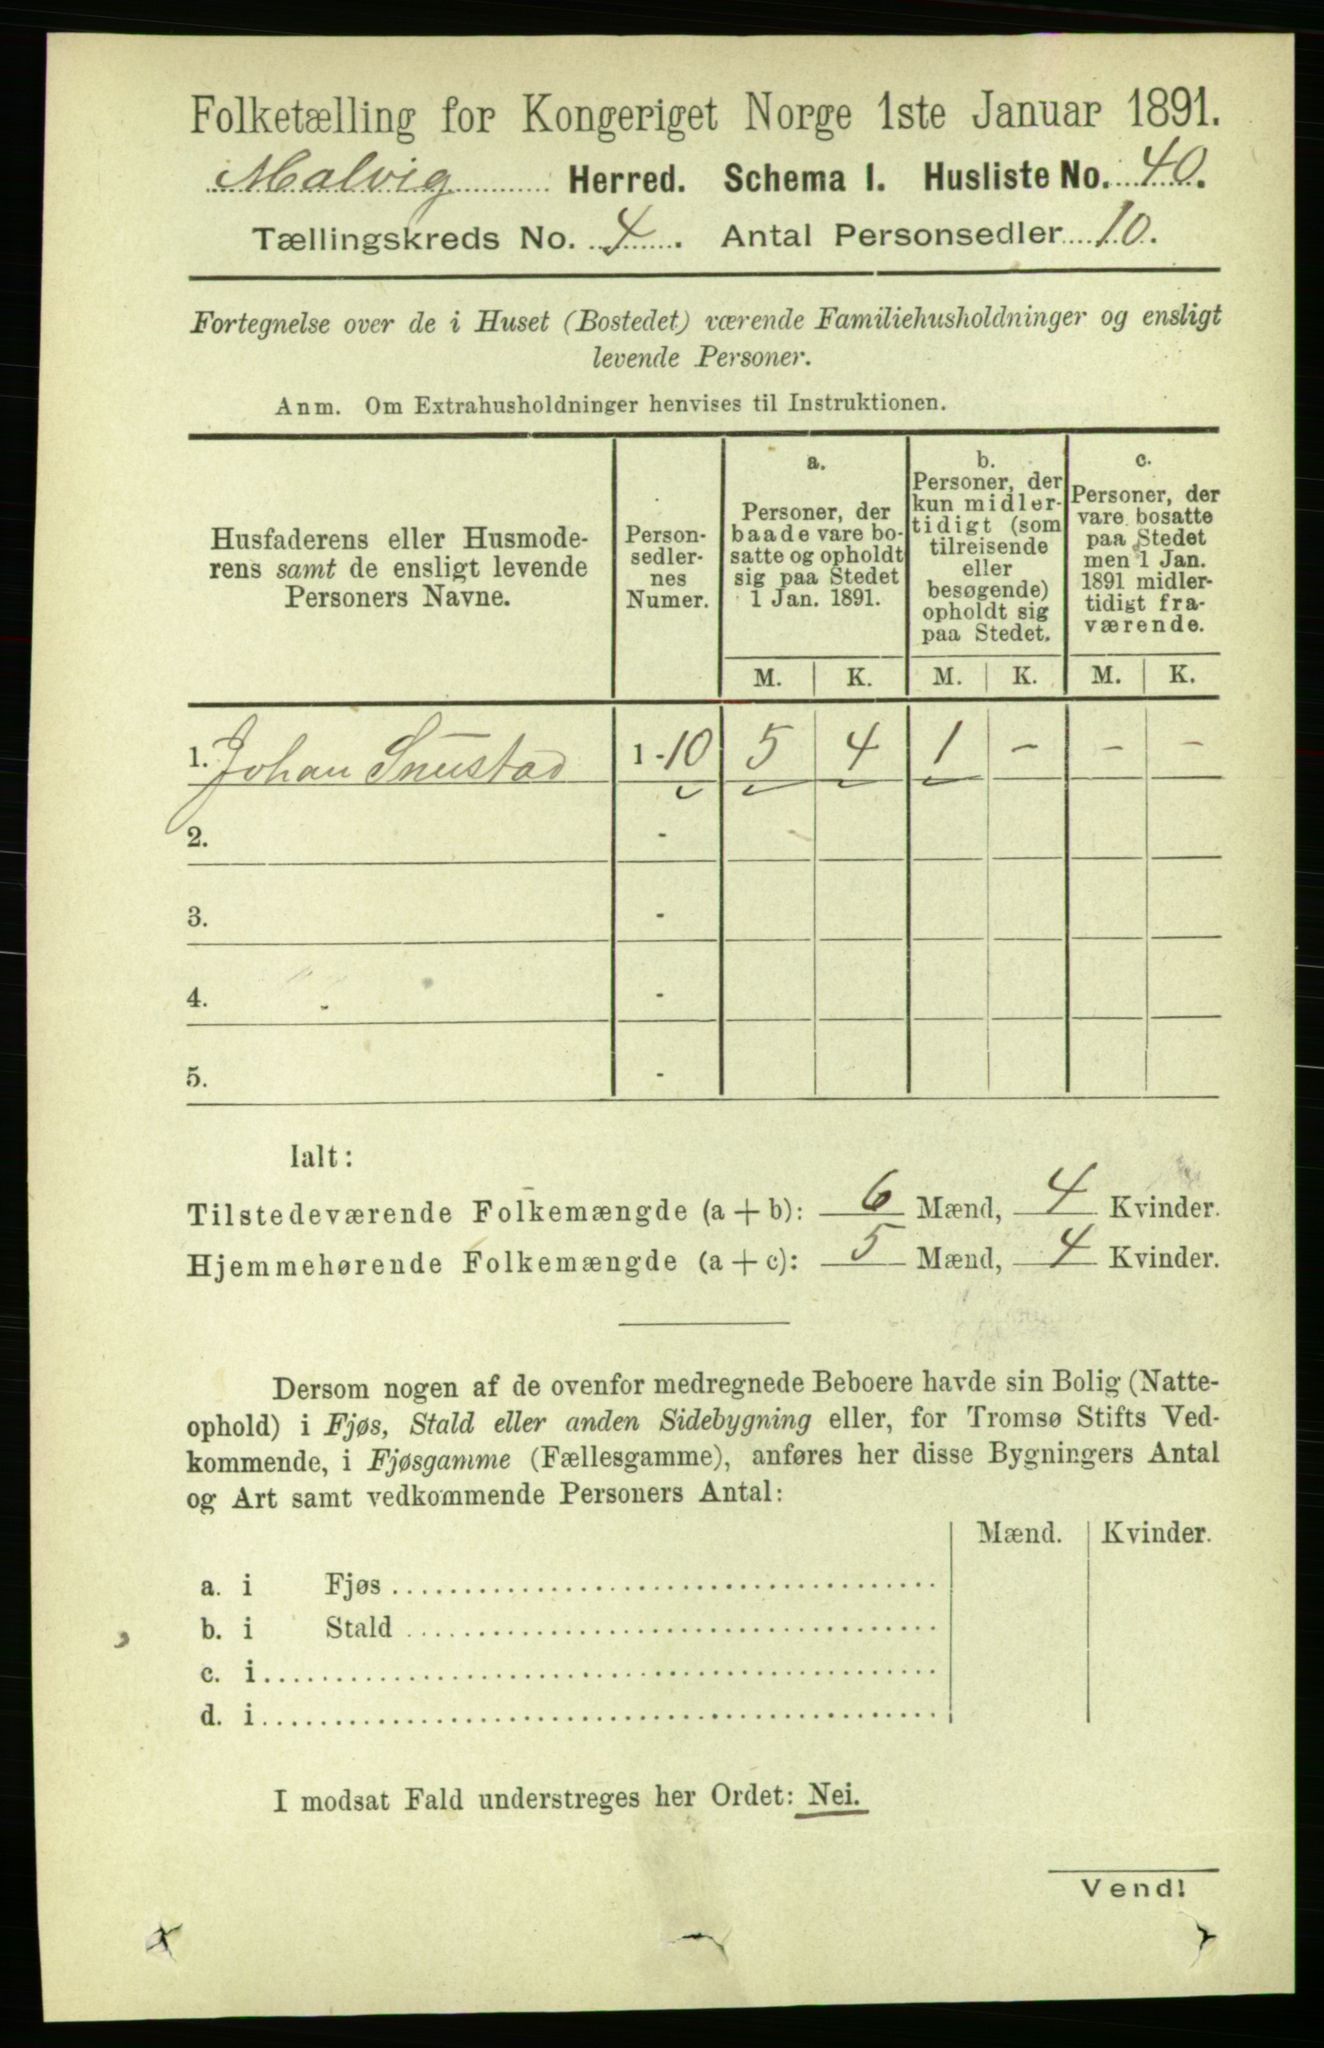 Folketælling for Kongeriget Norge 1ste Januar 1891.
Malvig Herred. Schema I. Husliste No. 40.
Tællingskreds No. 4. Antal Personsedler 10.
Fortegnelse over de i Huset (Bostedet) værende Familiehusholdninger og ensligt
levende Personer.
Anm. Om Extrahusholdninger henvises til Instruktionen.
Husfaderens eller Husmode-
rens samt de ensligt levende
Personers Navne.
Person-
sedler-
nes
Numer.
a.
Personer, der
baade vare bo-
satte og opholdt
sig paa Stedet
1 Jan. 1891.
b.
Personer, der
kun midler-
tidigt (som
tilreisende
eller
besøgende)
opholdt sig
paa Stedet.
c.
Personer, der
vare bosatte
paa Stedet
men 1 Jan.
1891 midler-
tidigt fra-
værende.
M. K. M. K. M. K.
1. Johan Snustad 1-10 5 4 1 - - -
2. -
3. -
4. -
5. -
Ialt:
Tilstedeværende Folkemængde (a + b): 6 Mænd, 4 Kvinder.
Hjemmehørende Folkemængde (a + c): 5 Mænd, 4 Kvinder.
Dersom nogen af de ovenfor medregnede Beboere havde sin Bolig (Natte-
ophold) i Fjøs, Stald eller anden Sidebygning eller, for Tromsø Stifts Ved-
kommende, i Fjøsgamme (Fællesgamme), anføres her disse Bygningers Antal
og Art samt vedkommende Personers Antal:
Mænd. Kvinder.
a. i Fjøs
b. i Stald
c. i
d. i
I modsat Fald understreges her Ordet: Nei.
Vend!